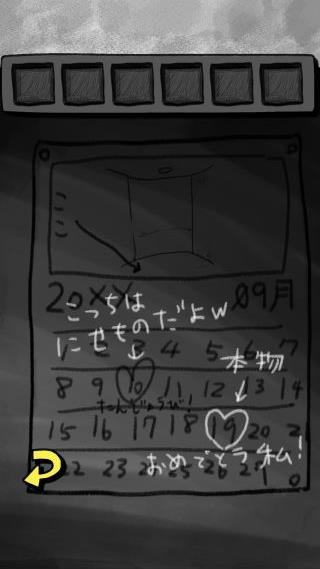 20XX 09月
こっちは
にせものだよw
1 2 3 4 5 6 7
本物
8 9 10 11 12 13 14
たんじょうび!
15 16 17 18 19 20 2
おめでとう私!
22 23 24 25 26 27